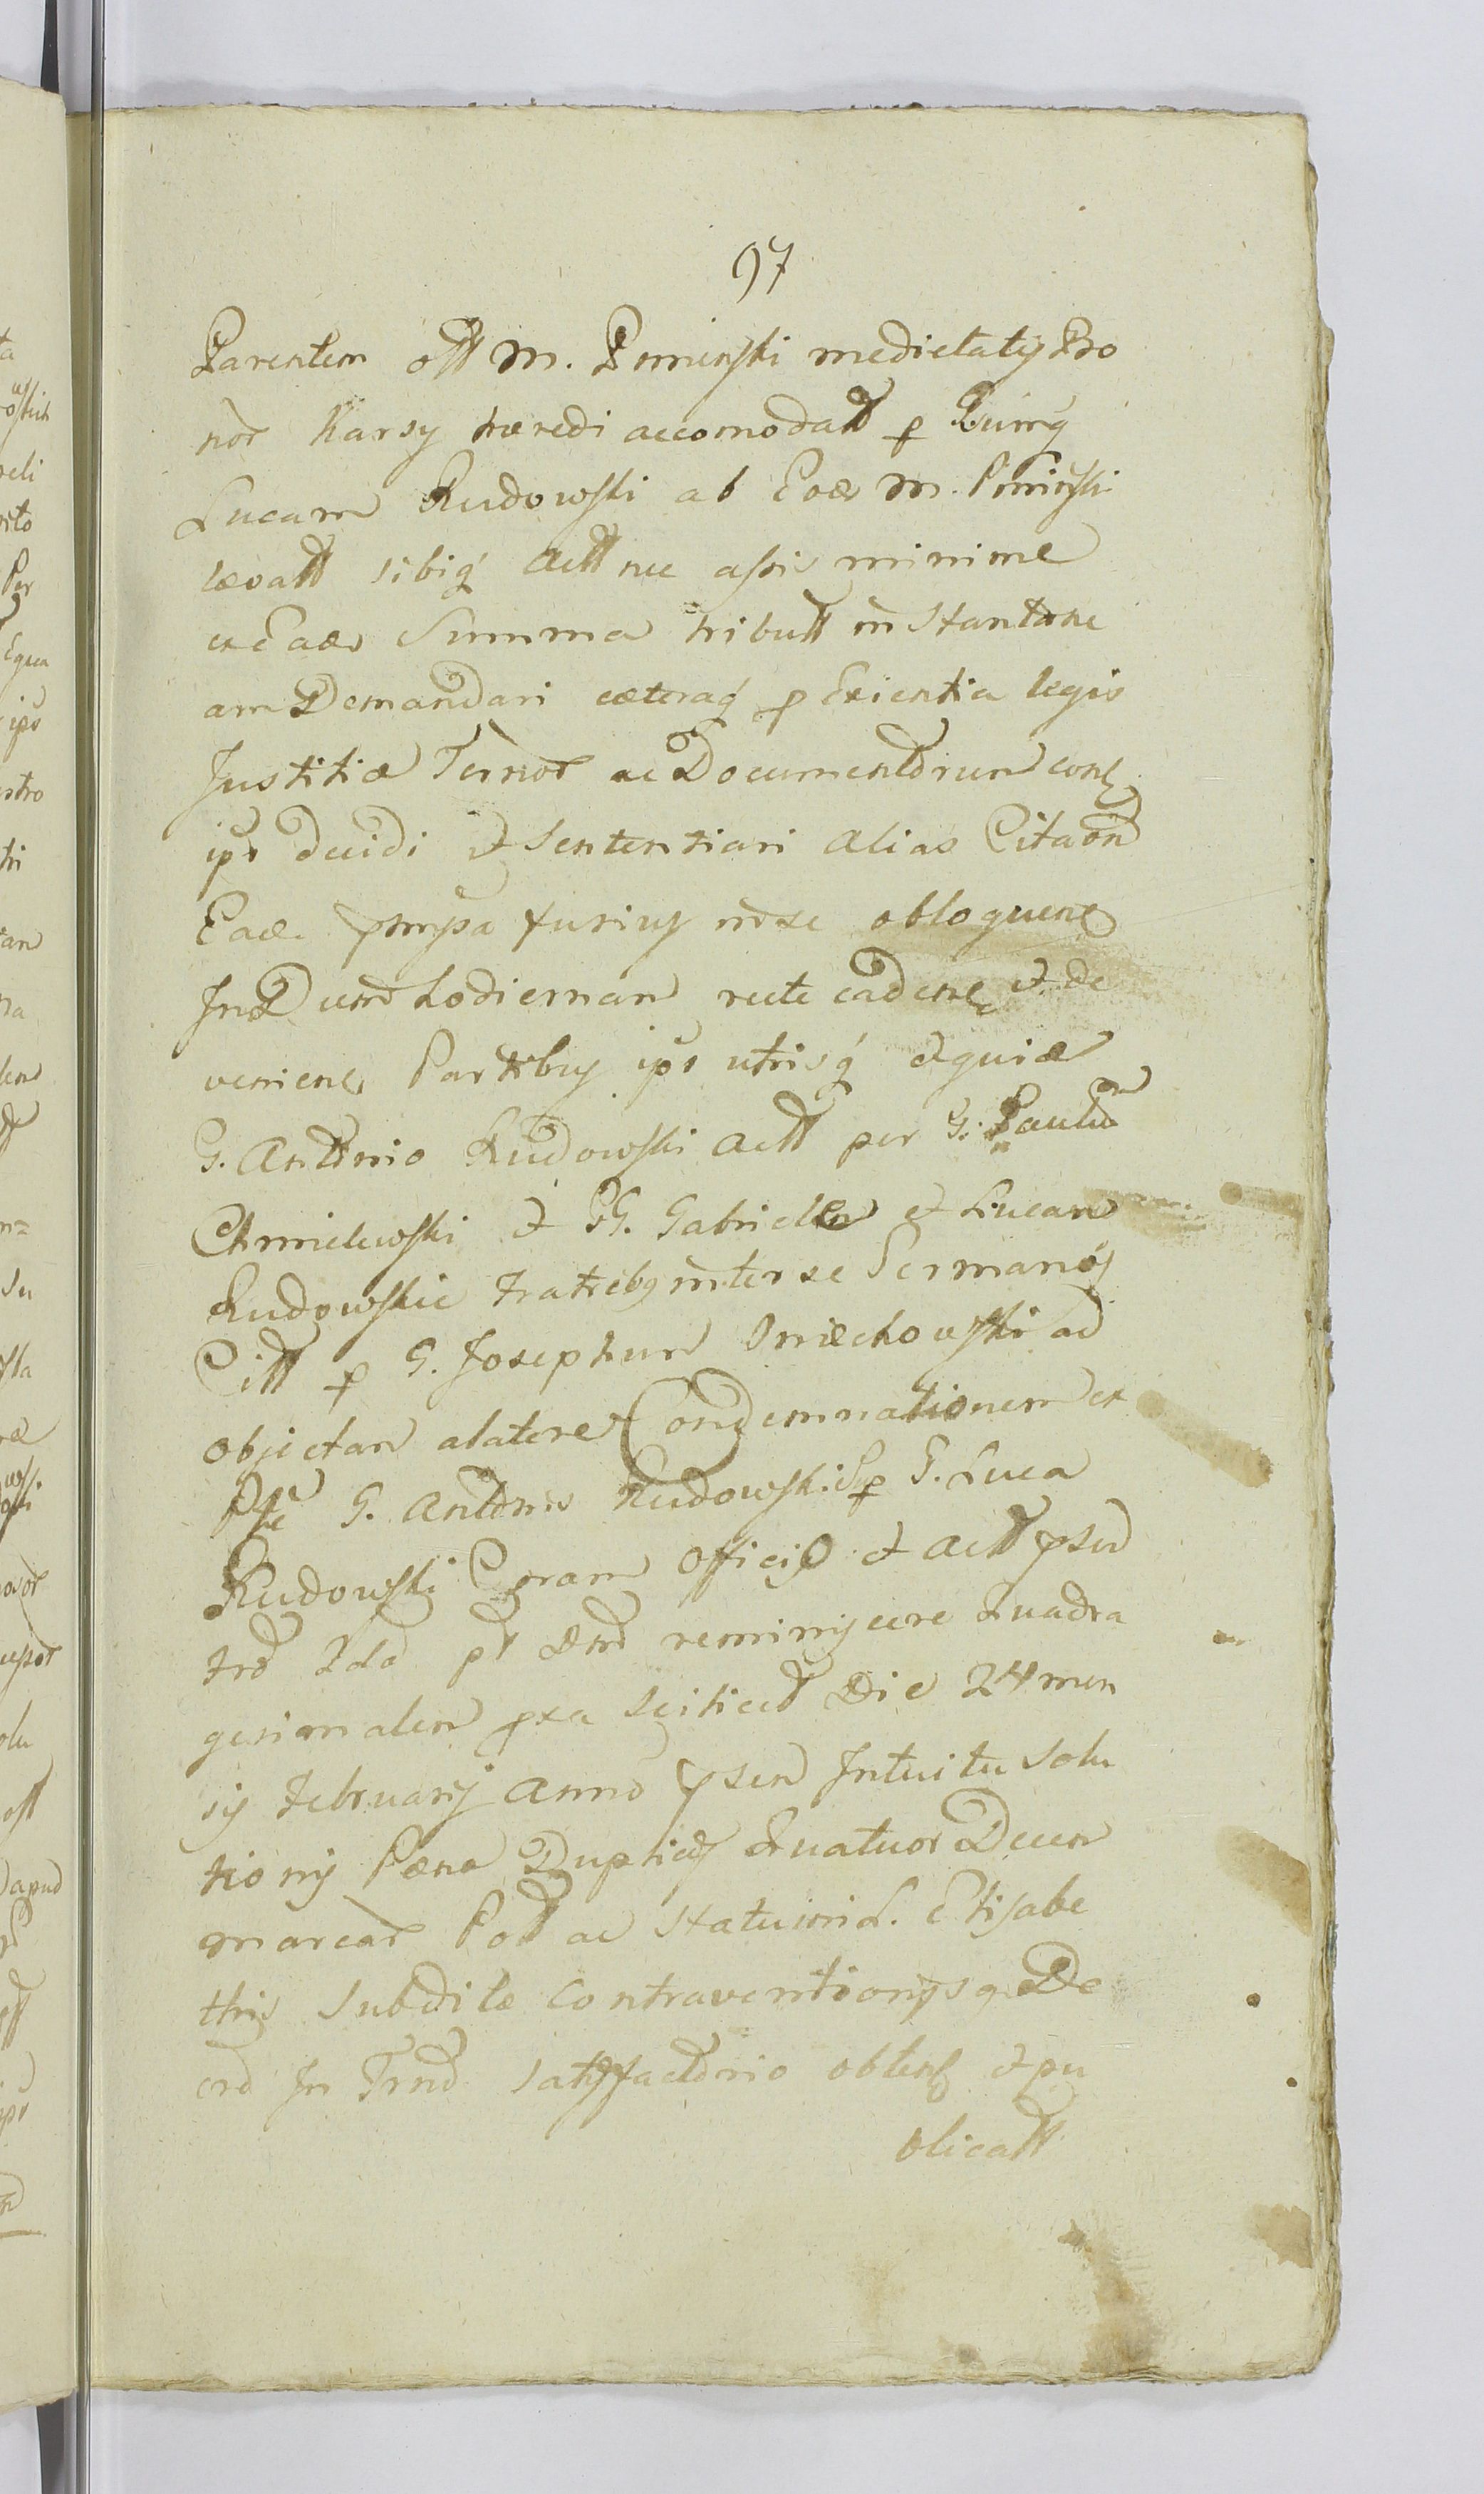 97
Parentem olt M. Pminski medietatis Bo
nor Karsy hæredi accomodatt p
Lucam Rudowski ab Eod M. Pminski
levatt sibiq Actt nec assis minime
ex Ead Summa tributt in Stantane
am Demandari cæteraq p Exientia legis
Justitiæ Tenor ac Documentorum cons
ips decidi et Sententiari alias Citaon
Ead fusius in se obloquen
In D hodiernan recte caden et de
venien Partibus ips utrisq et quia
G. Antonio Rudowski Actt per G. Paulu
Chmielewski et GG. Gabrielem et Lucam
Rudowskie Fratribq inter se Germanos
Citt p G. Josephum Smiechowski ad
objectan a latere Condemnationem ex
Pte G. Antonii Rudowski Sup G. Luca
Rudowski Coram Officio et Actt psen
Fer 2da pt Dom reminiscere Quadra
gesimalem pxa scilicet Die 24 men
sis Februarij Anno psen Intuitu Solu
tionis Pæna Duplicis Quatuor Decem
marcar Pol ac Statuioni L. Elisabe
this Subditæ Contraventionisq De
creto In Trno Satisfactorio obtent et pu
blicatt